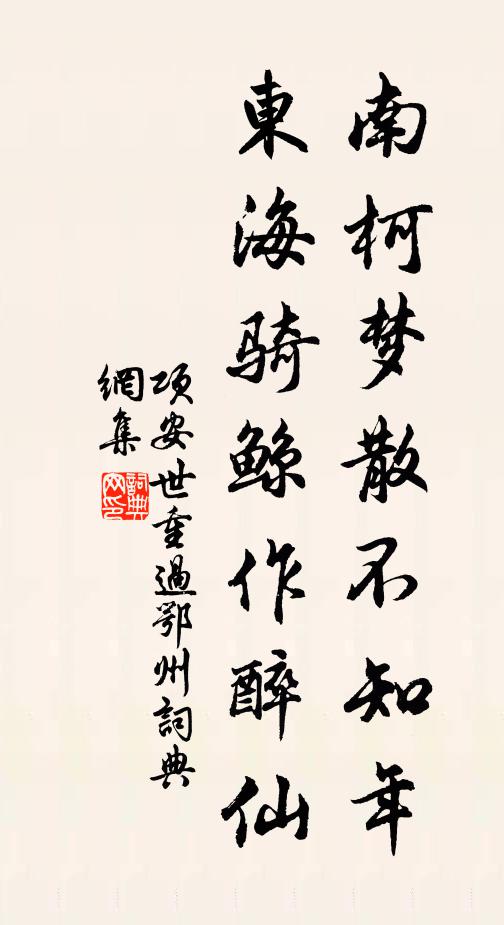 南柯梦散不知年
東海骑鲸作醉仙
项安世重過鄂州詞典
網集
詞典
网印